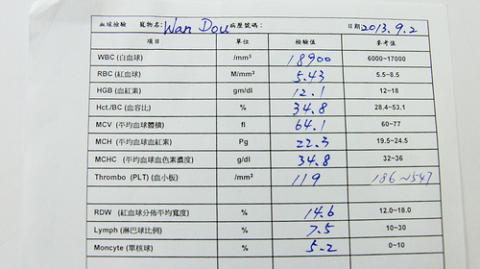 血球檢驗 寵物名: Wan Dou 病歷號碼: 日期 2013.9.2
項目 單位 檢驗值 參考值
WBC (白血球) /mm³ 18900 6000~17000
RBC (紅血球) M/mm³ 5.43 5.5~8.5
HGB (血紅素) gm/dl 12.1 12~18
Hct./BC (血容比) % 34.8 28.4~53.1
MCV (平均血球體積) fl 64.1 60~77
MCH (平均血球血紅素) Pg 22.3 19.5~24.5
MCHC (平均血球血色素濃度) g/dl 34.8 32~36
Thrombo (PLT) (血小板) /mm³ 119 186~547
RDW (紅血球分佈平均寬度) % 14.6 12.0~18.0
Lymph (淋巴球比例) % 7.5 10~30
Moncyte (單核球) % 5.2 0~10